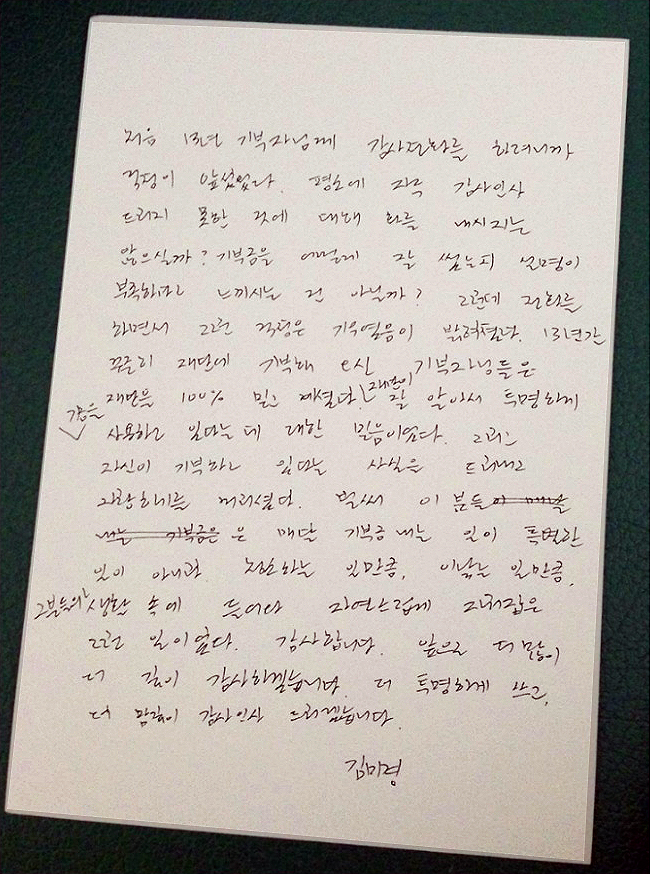 처음 13년 기부자님께 감사전화를 하려니까
걱정이 앞섰었다. 평소에 자주 감사인사
드리지 못한 것에 대해 화를 내시지는
않으실까? 기부금을 어떻게 잘 썼는지 설명이
부족하다고 느끼시는 건 아닐까? 그런데 전화를
하면서 그런 걱정은 기우였음이 밝혀졌다. 13년간
꾸준히 재단에 기부해 오신 기부자님들은
재단을 100% 믿고 계셨다. 재단이 잘 알아서 투명하게
기금을 사용하고 있다는 데 대한 믿음이었다. 그리고
자신이 기부하고 있다는 사실을 드러내고
자랑하기를 꺼리셨다. 벌써 이분들
은 매달 기부금 내는 일이 특별한
일이 아니란 일만큼, 일만큼,
그분들의 생활 속에 들어와 자연스럽게 자리잡은
그런 일이었다. 감사합니다. 앞으로 더 많이
더 깊이 감사하겠습니다. 더 투명하게 쓰고,
더 많이 감사인사 드리겠습니다.
김미경